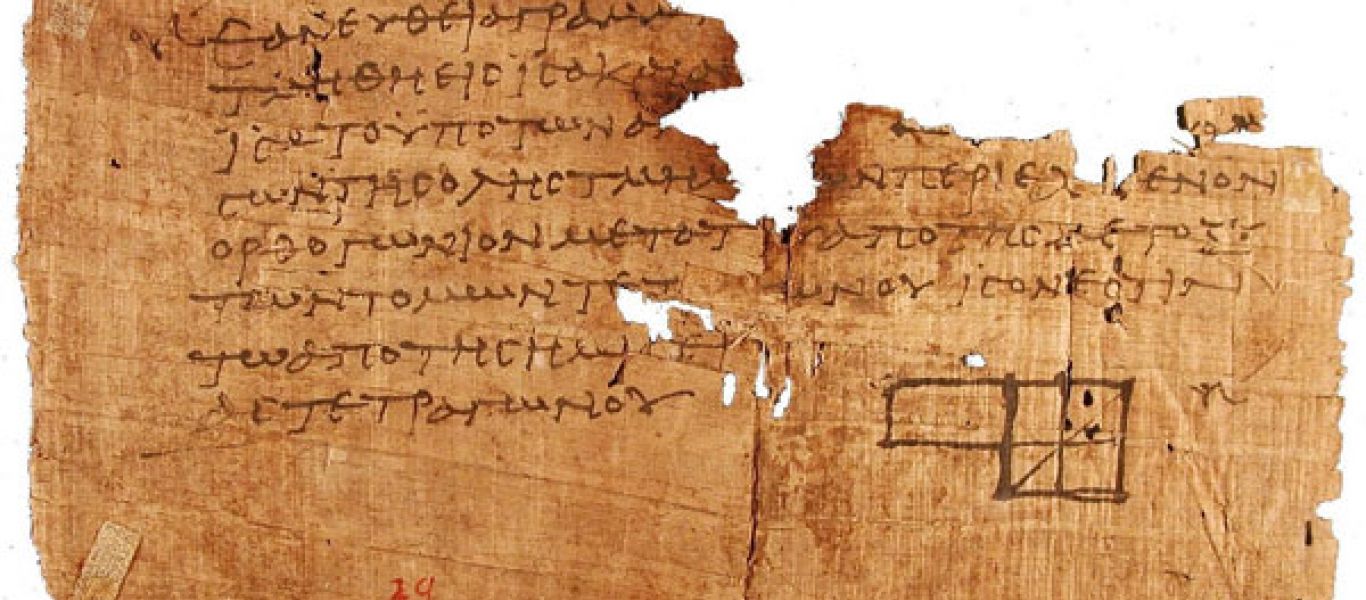 ΕΑΝΕΥΘΕΙΑΓΡΑΜΜ
ΤΜΗΘΗΕΙϹΙϹΑΚΑΙΑΝ
ΙϹΑΤΟΥΠΟΤΩΝΑ
ΤΩΝΤΗϹΟΛΗϹΤΜΗΜ ΩΝΠΕΡΙΕΧ ΜΕΝΟΝ
ΟΡΘΟΓΩΝΙΟΝΜΕΤΑΤ ΥΑΠΟΤΗϹΜΕΤΟΞΥ
ΤΩΝΤΟΜΩΝΤΕΤ ΩΝΟΥΙϹΟΝΕϹΤΙΝ
ΤΩΑΠΟΤΗϹΗΜΙ ΕΙ
ΑϹΤΕΤΡΑΓΩΝΟΥ
29